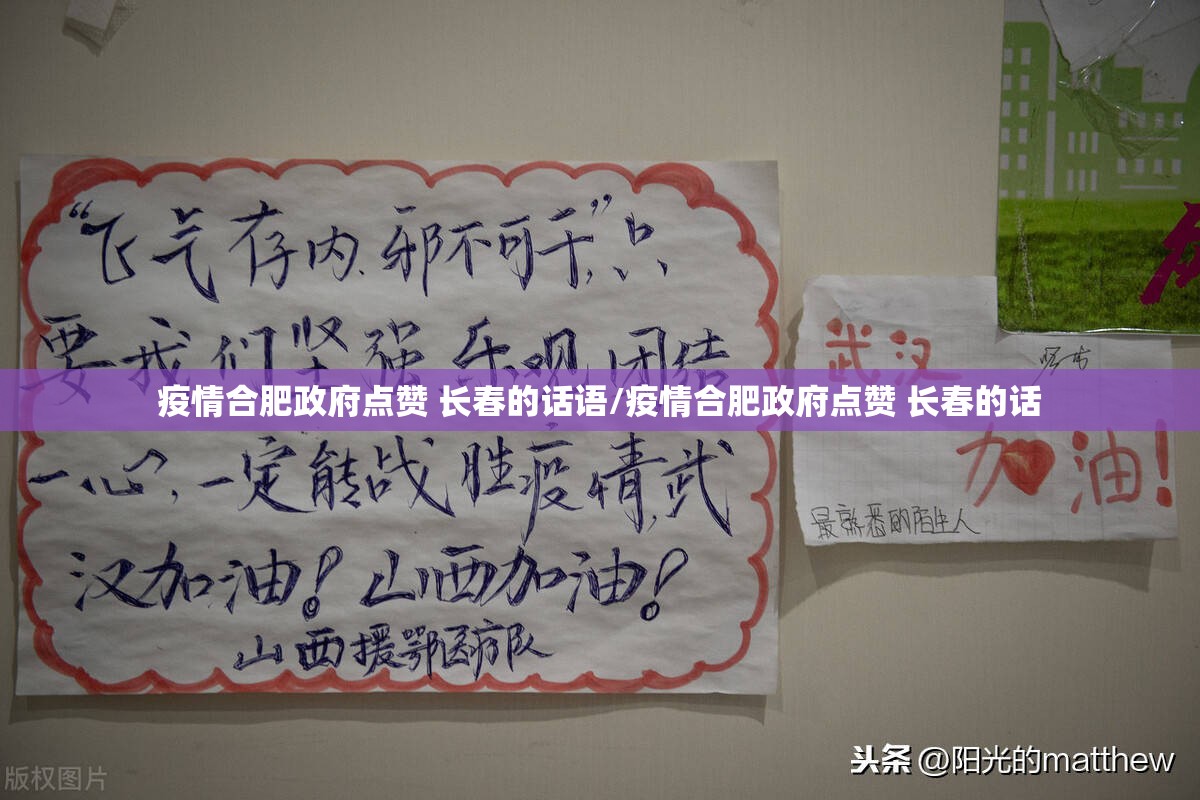 “飞气存内、邪不可干”,只
要我们坚强乐观团结
疫情合肥政府点赞 长春的话语/疫情合肥政府点赞 长春的话
一心,一定能战胜疫情,武
汉加油!山西加油!
山西援鄂医疗队
武汉
加油!
最熟悉的陌生人
头条 @阳光的matthew
版权图片